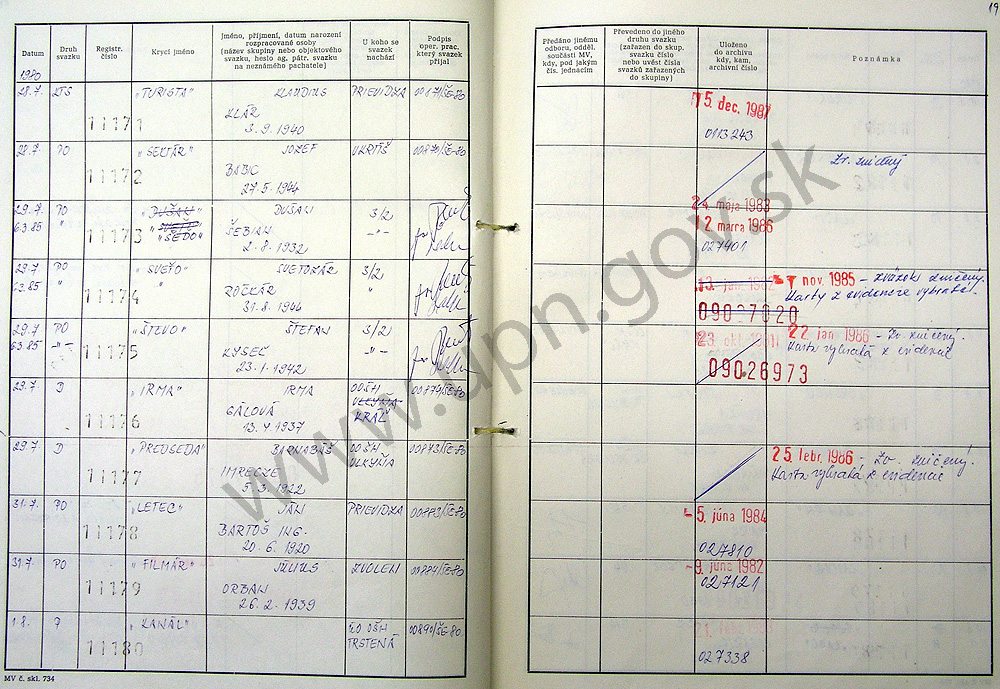 19
Datum
Druh svazku
Registr. číslo
Krycí jméno
Jméno, příjmení, datum narození
rozpracované osoby
(název skupiny nebo objektového
svazku, heslo ag. pátr. svazku
na neznámého pachatele)
U koho se
svazek
nachází
Podpis
oper. prac.
který svazek
přijal
Předáno jinému
odboru, odděl.
součásti MV,
kdy, pod jakým
čís. jednacím
Převedeno do jiného
druhu svazku
(zařazen do skup.
svazku číslo
nebo uvést čísla
svazků zařazených
do skupiny)
Uloženo
do archivu
kdy, kam,
archivní číslo
Poznámka
1980
28.7. KTS "TURISTA" KLAUDIUS PRIEVIDZA
11171 KLÁR
3.9.1940
5. dec. 1987
0113243
28.7. PO "SEKTÁR" JOZEF
11172 BABIC
27.5.1944
24. mája 1983
Zv. zničený
29.7. PO "DUŠAN" DUŠAN 3/2
6.3.85 " "SVEŤO" "ŠEDO"
11173 ŠEBIAN -"-
2.8.1932
2. marca 1986
027401
29.7 PO "SVEŤO" SVETOZÁR 3/2
6.3.85 "
11174 ROČKÁR
31.8.1944
nov. 1985 - zväzok zničený.
Karty z evidencie vybraté.
09027020
29.7 PO "ŠTEVO" ŠTEFAN 3/2
6.3.85 -"-
11175 KYSEĽ -"-
23.1.1942
22. jan. 1986 - Zv. zničený.
Karta vybratá z evidencie
09026973
29.7. D "IRMA" IRMA OOŠH
VLKYŇA
11176 GÁLOVÁ KRÁĽ
13.4.1937
29.7. D "PREDSEDA" BARNABÁŠ OOŠH
VLKYŇA
11177 IMRECZE
5.3.1922
25. febr. 1986 - Zv. zničený.
Karta vybratá z evidencie
31.7. PO "LETEC" JÁN PRIEVIDZA
11178 BARTOŠ ING.
20.6.1920
5. júna 1984
027810
31.7. PO "FILMÁR" JÚLIUS ZVOLEN
11179 ORBAN
26.2.1939
9. júna 1982
027121
1.8. "KANÁL" OŠH
11180 TRSTENÁ
027338
MV č. skl. 734
www.upn.gov.sk